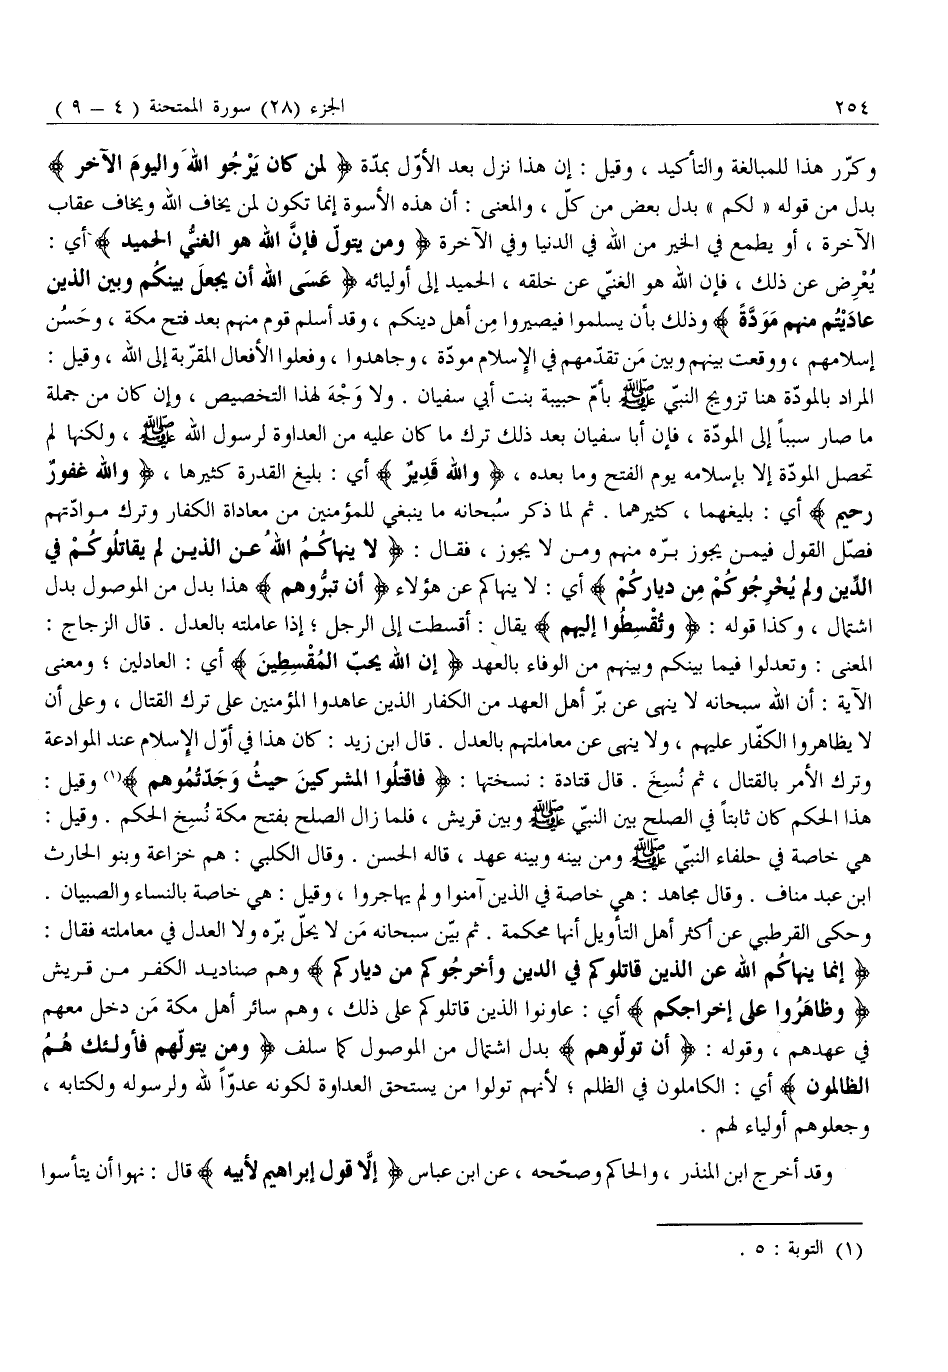 ٢٥٤ الجزء (٢٨) سورة الممتحنة ( ٤ – ٩ )
وكرّر هذا للمبالغة والتأكيد ، وقيل : إن هذا نزل بعد الأوّل بمدّة ﴿ لمن كان يَرْجُو اللهَ واليومَ الآخر ﴾
بدل من قوله « لكم » بدل بعض من كلّ ، والمعنى : أن هذه الأسوة إنما تكون لمن يخاف الله ويخاف عقاب
الآخرة ، أو يطمع في الخير من الله في الدنيا وفي الآخرة ﴿ ومن يتولّ فإنَّ الله هو الغنيُّ الحميد ﴾ أي :
يُعْرِض عن ذلك ، فإن الله هو الغنيّ عن خلقه ، الحميد إلى أوليائه ﴿ عَسَى الله أن يجعلَ بينكُم وبين الذين
عادَيْتُم منهم مَوَدَّةً ﴾ وذلك بأن يسلموا فيصيروا مِن أهل دينكم ، وقد أسلم قوم منهم بعد فتح مكة ، وحَسُن
إسلامهم ، ووقعت بينهم وبين مَن تقدّمهم في الإسلام مودّة ، وجاهدوا ، وفعلوا الأفعال المقرّبة إلى الله ، وقيل :
المراد بالمودّة هنا تزويج النبيّ ﷺ بأمّ حبيبة بنت أبي سفيان . ولا وَجْهَ لهذا التخصيص ، وإن كان من جملة
ما صار سبباً إلى المودّة ، فإن أبا سفيان بعد ذلك ترك ما كان عليه من العداوة لرسول الله ﷺ ، ولكنها لم
تحصل المودّة إلا بإسلامه يوم الفتح وما بعده ، ﴿ والله قَدِيرٌ ﴾ أي : بليغ القدرة كثيرها ، ﴿ والله غفورٌ
رحيم ﴾ أي : بليغهما ، كثيرهما . ثم لما ذكر سُبحانه ما ينبغي للمؤمنين من معاداة الكفار وترك موادّتهم
فصّل القول فيمن يجوز برّه منهم ومن لا يجوز ، فقال : ﴿ لا ينهاكُمُ اللهُ عن الذين لم يقاتلُوكُمْ في
الدِّين ولم يُخْرِجُوكُمْ مِن دياركُمْ ﴾ أي : لا ينهاكم عن هؤلاء ﴿ أن تبرُّوهم ﴾ هذا بدل من الموصول بدل
اشتمال ، وكذا قوله : ﴿ وتُقْسِطُوا إليهم ﴾ يقال : أقسطت إلى الرجل ؛ إذا عاملته بالعدل . قال الزجاج :
المعنى : وتعدلوا فيما بينكم وبينهم من الوفاء بالعهد ﴿ إن الله يحبّ المُقْسِطِينَ ﴾ أي : العادلين ؛ ومعنى
الآية : أن الله سبحانه لا ينهى عن برّ أهل العهد من الكفار الذين عاهدوا المؤمنين على ترك القتال ، وعلى أن
لا يظاهروا الكفّار عليهم ، ولا ينهى عن معاملتهم بالعدل . قال ابن زيد : كان هذا في أوّل الإسلام عند الموادعة
وترك الأمر بالقتال ، ثم نُسِخَ . قال قتادة : نسختها : ﴿ فاقتلُوا المشركينَ حيثُ وَجَدْتُمُوهم ﴾(١) وقيل :
هذا الحكم كان ثابتاً في الصلح بين النبيّ ﷺ وبين قريش ، فلما زال الصلح بفتح مكة نُسِخ الحكم . وقيل :
هي خاصة في حلفاء النبيّ ﷺ ومن بينه وبينه عهد ، قاله الحسن . وقال الكلبي : هم خزاعة وبنو الحارث
ابن عبد مناف . وقال مجاهد : هي خاصة في الذين آمنوا ولم يهاجروا ، وقيل : هي خاصة بالنساء والصبيان .
وحكى القرطبي عن أكثر أهل التأويل أنها محكمة . ثم بيّن سبحانه مَن لا يحلّ برّه ولا العدل في معاملته فقال :
﴿ إنما ينهاكُم الله عن الذين قاتلوكم في الدين وأخرجُوكم من دياركم ﴾ وهم صناديد الكفر من قريش
﴿ وظاهَرُوا على إخراجكم ﴾ أي : عاونوا الذين قاتلوكم على ذلك ، وهم سائر أهل مكة مَن دخل معهم
في عهدهم ، وقوله : ﴿ أن تولّوهم ﴾ بدل اشتمال من الموصول كما سلف ﴿ ومن يتولّهم فأولئك هُمُ
الظالمون ﴾ أي : الكاملون في الظلم ؛ لأنهم تولوا من يستحق العداوة لكونه عدوّاً لله ولرسوله ولكتابه ،
وجعلوهم أولياء لهم .
وقد أخرج ابن المنذر ، والحاكم وصحّحه ، عن ابن عباس ﴿ إلَّا قول إبراهيم لأبيه ﴾ قال : نهوا أن يتأسوا
(١) التوبة : ٥ .